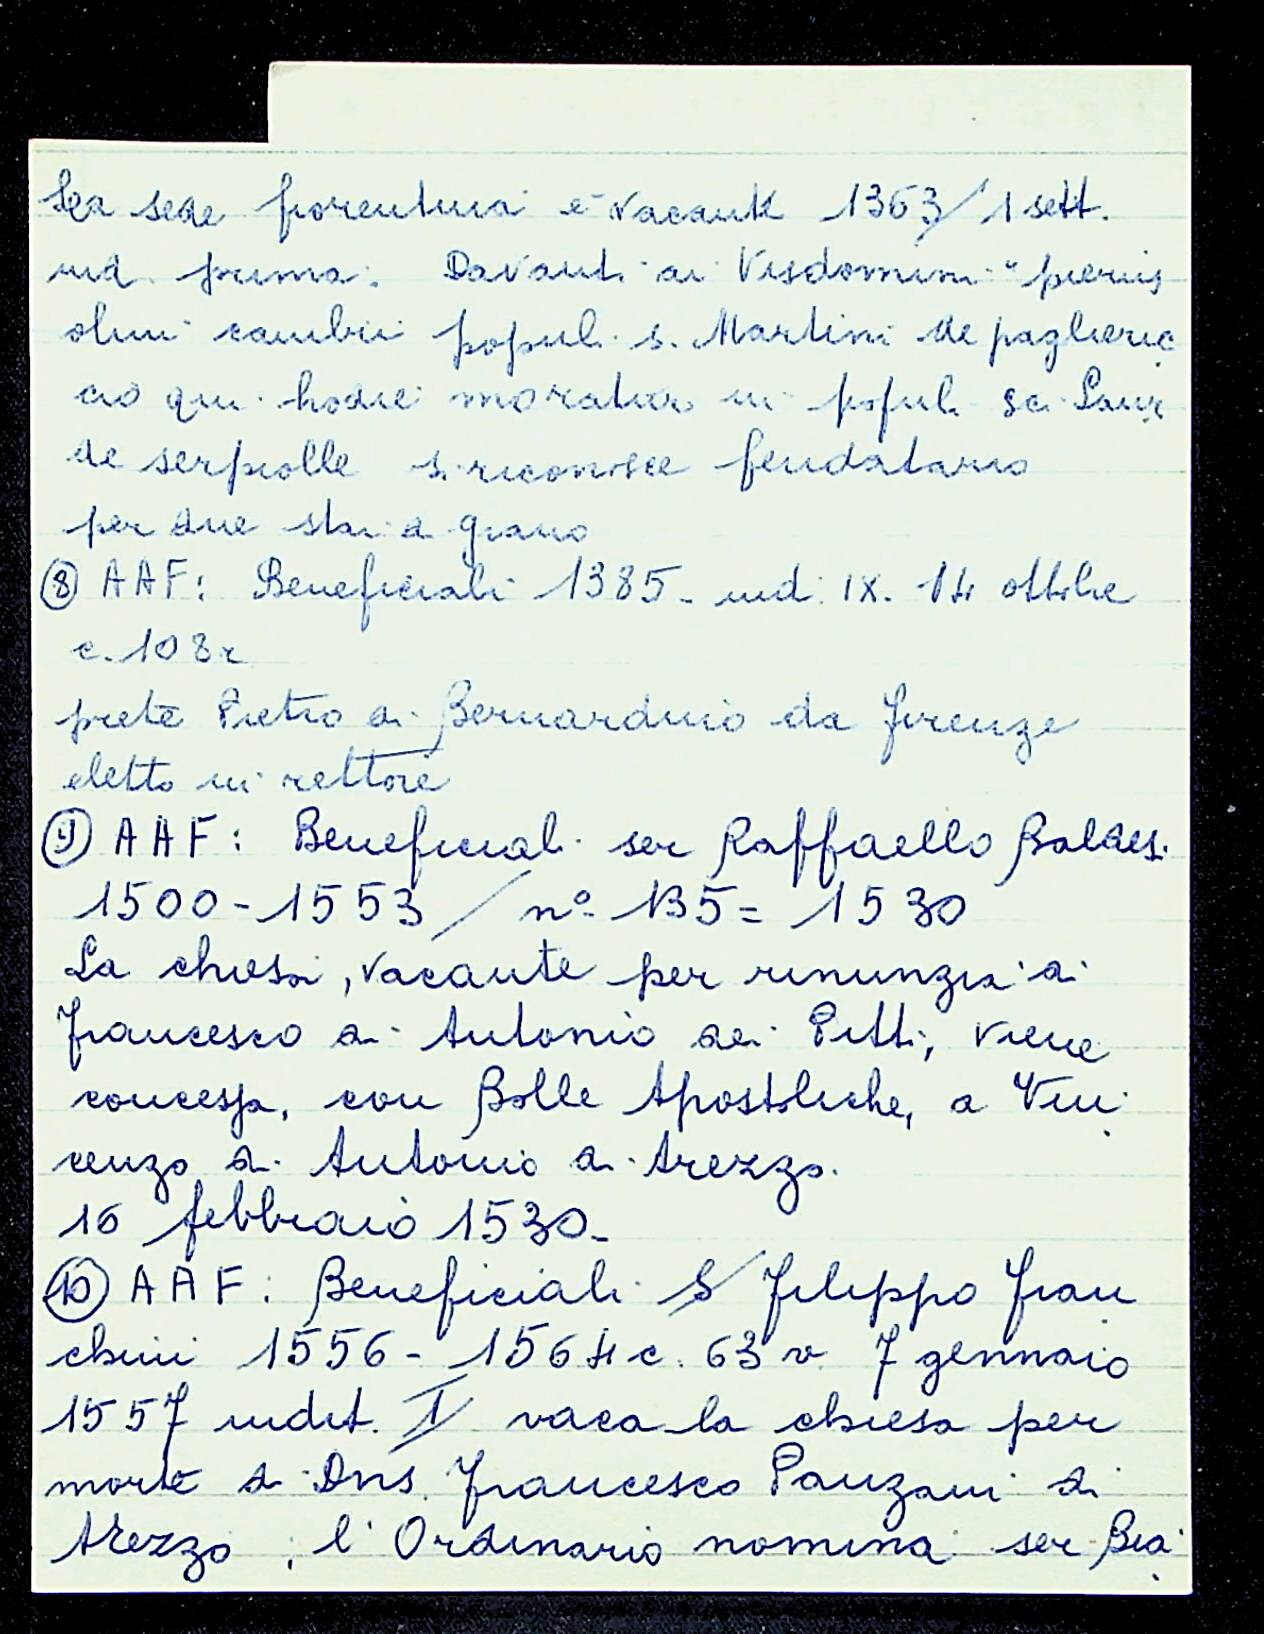 La sede fiorentina è vacante 1363/1 sett.
ind. prima. Davanti ai Visdomini "pierus
olim cambii popul. s. Martini de paglieric
cio qui hodie moratur in popul. sci Laur.
de serpiolle si riconosce feudatario
per due staia grano
⑧ AAF: Beneficiali 1385. ind. IX. 14 ottobre
c. 108r
prete Pietro di Bernardino da Firenze
eletto in rettore
⑨ AAF: Beneficiali ser Raffaello Baldes.
1500-1553 / n° 135 = 1530
La chiesa, vacante per rinunzia di
Francesco di Antonio dei Pitti, viene
concessa, con Bolle Apostoliche, a Vin
cenzo di Antonio di Arezzo.
16 febbraio 1530.
⑩ AAF: Beneficiali S/ Filippo Fran
chini 1556-1564 c. 63v. 7 gennaio
1557 indit. I vaca la chiesa per
morte di Dns. Francesco Panzani di
Arezzo; l'Ordinario nomina ser Bia